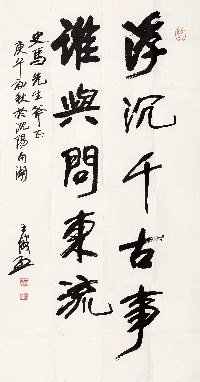 浮沉千古事
谁與问東流
史馬先生斧正
庚午初秋於沈陽南湖